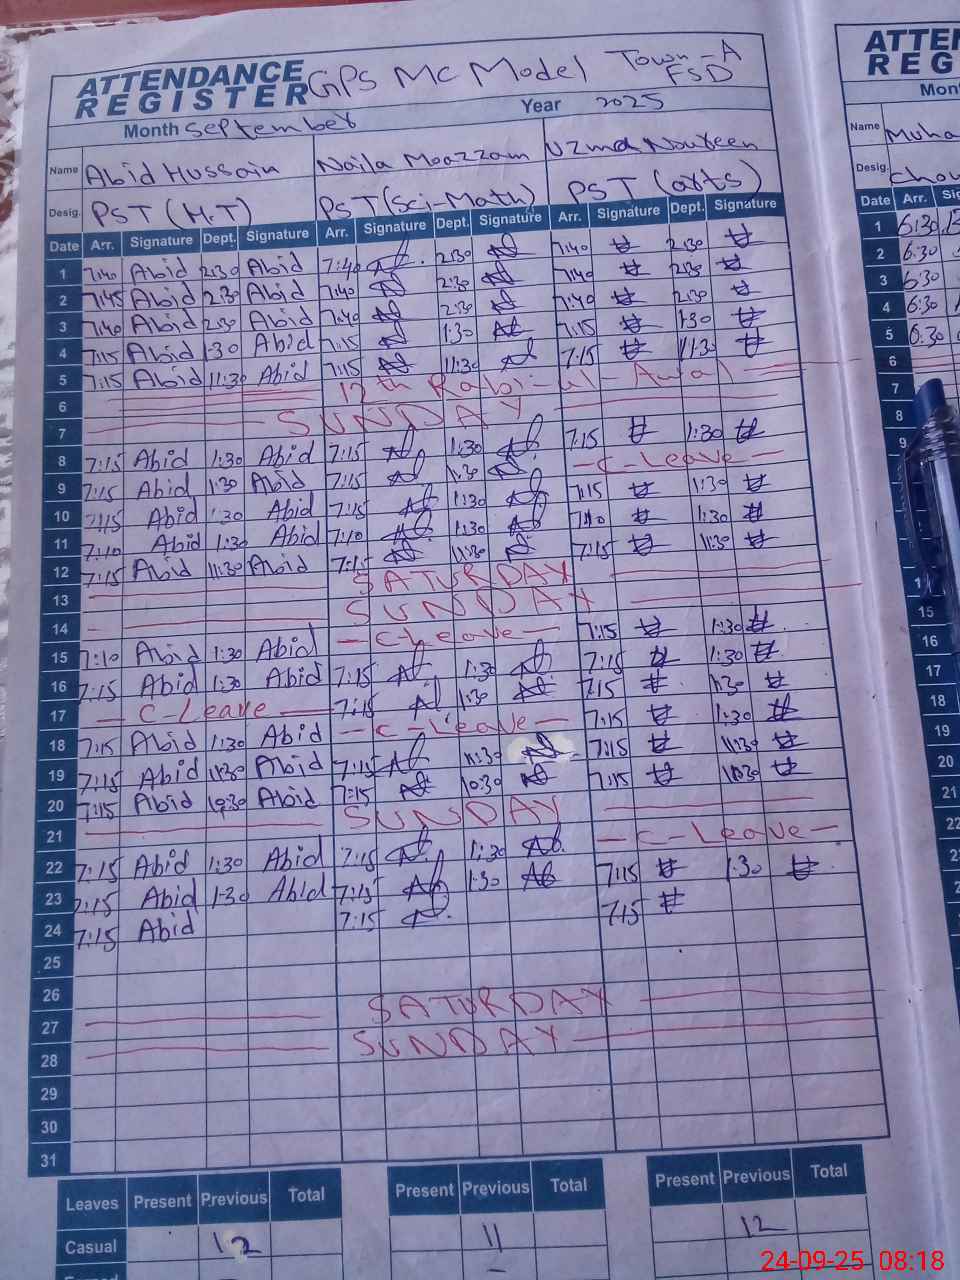 ATTENDANCE REGISTER GPS MC Model Town-A FSD
Month September Year 2025
Name Abid Hussain Naila Moazzam Uzma Noureen
Desig. PST (H.T) PST (Sci-Math) PST (arts)
Date Arr. Signature Dept. Signature Arr. Signature Dept. Signature Arr. Signature Dept. Signature
1 7:40 Abid 2:30 Abid 7:40 2:30 7:40 2:30
2 7:45 Abid 2:30 Abid 7:40 2:30 7:40 2:30
3 7:40 Abid 2:30 Abid 7:40 2:30 7:40 2:30
4 7:15 Abid 1:30 Abid 7:15 1:30 7:15 1:30
5 7:15 Abid 11:30 Abid 7:15 11:30 7:15 11:30
6 12th Rabi-ul-Awal
7 SUNDAY
8 7:15 Abid 1:30 Abid 7:15 1:30 7:15 1:30
9 7:15 Abid 1:30 Abid 7:15 1:30 -C-Leave-
10 7:15 Abid 1:30 Abid 7:15 1:30 7:15 1:30
11 7:10 Abid 1:30 Abid 7:10 1:30 7:10 1:30
12 7:15 Abid 11:30 Abid 7:15 11:30 7:15 11:30
13 SATURDAY
14 SUNDAY
15 7:10 Abid 1:30 Abid -C-Leave- 7:15 1:30
16 7:15 Abid 1:30 Abid 7:15 1:30 7:15 1:30
17 -C-Leave- 7:15 1:30 7:15 1:30
18 7:15 Abid 1:30 Abid -C-Leave- 7:15 1:30
19 7:15 Abid 11:30 Abid 7:15 11:30 7:15 11:30
20 7:15 Abid 10:30 Abid 7:15 10:30 7:15 10:30
21 SUNDAY
22 7:15 Abid 1:30 Abid 7:15 1:30 -C-Leave-
23 7:15 Abid 1:30 Abid 7:15 1:30 7:15 1:30
24 7:15 Abid 7:15 7:15
25
26
27 SATURDAY
28 SUNDAY
29
30
31
Leaves Present Previous Total Present Previous Total Present Previous Total
Casual 12 11 12
Name
Desig.
Date Arr.
1 6:30
2 6:30
3 6:30
4 6:30
5 6:30
6
7
8
9
15
16
17
18
19
20
21
22
24-09-25 08:18